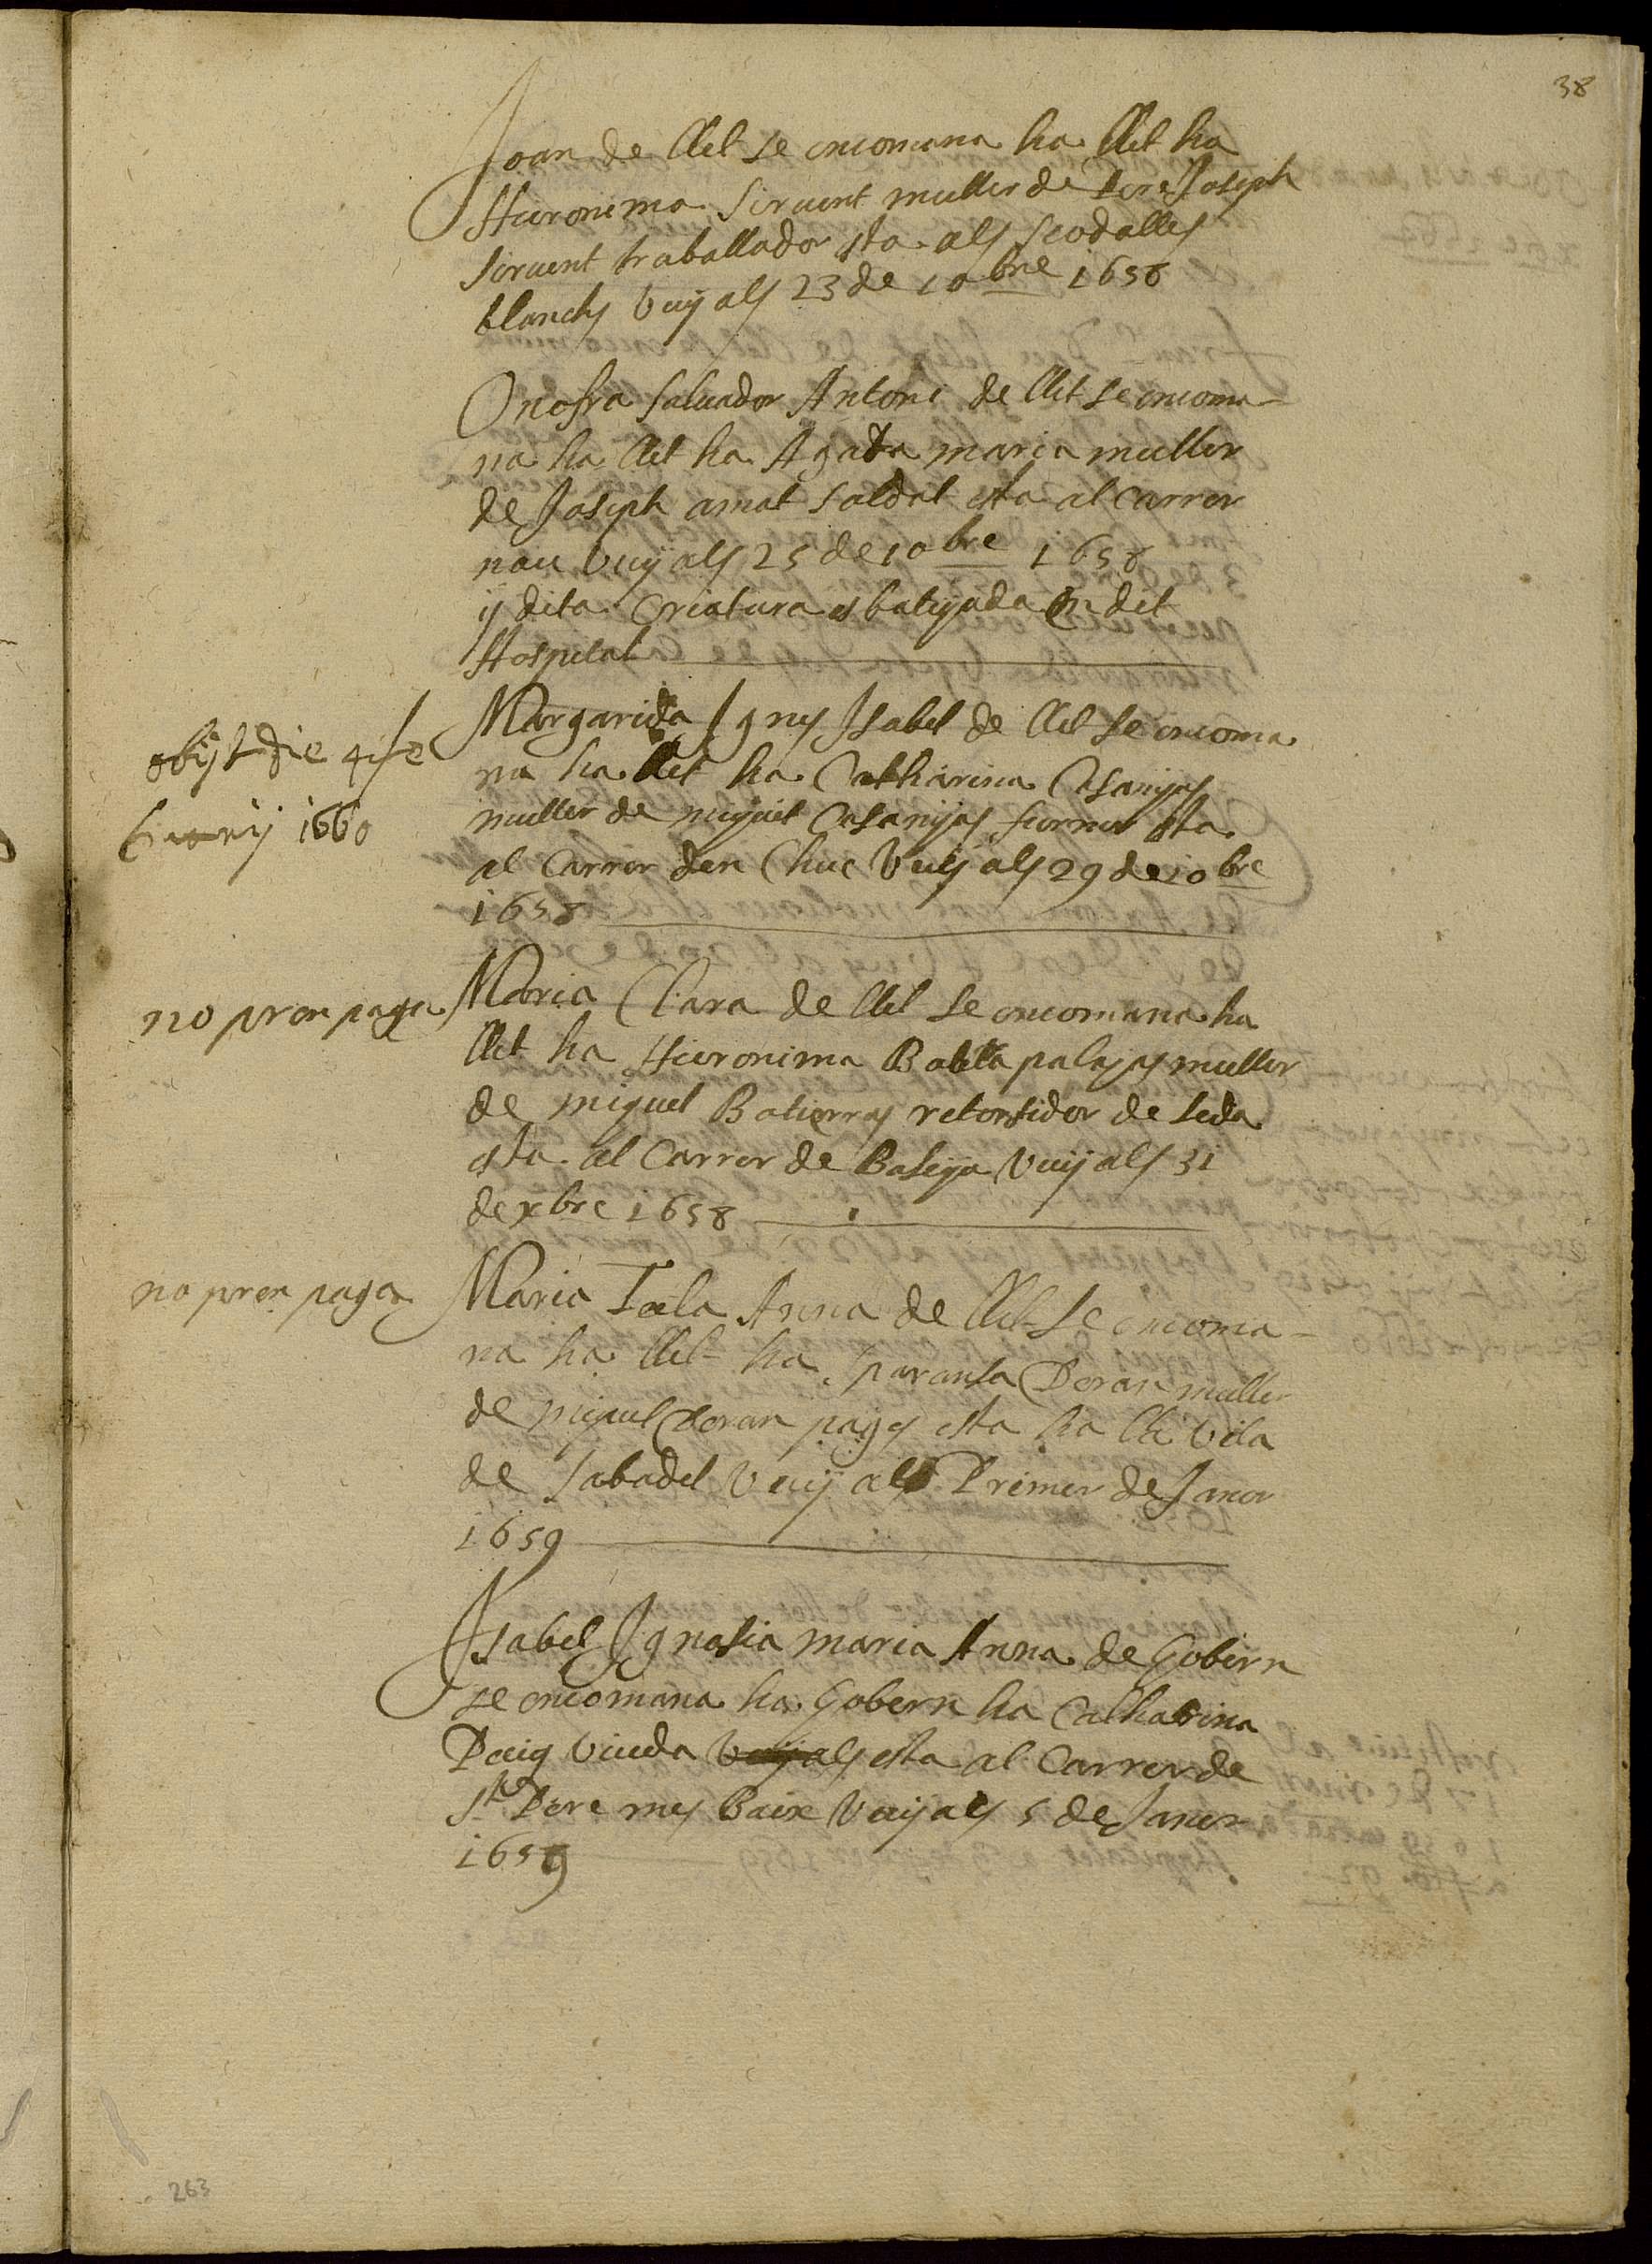 38
Joan de llet se encomana ha llet ha
Hieronima Siruent muller de Pere Joseph
Siruent traballador sta als scodalles
blanchs vuy als 23 de 10bre 1658
Onofra Saluador Antoni de llet se encoma-
na ha llet ha Agata maria muller
de Joseph amat Soldat esta al carrer
nou vuy als 25 de 10bre 1658
y dita Criatura es batejada en dit
Hospital
obijt die 4 fe
bruarij 1660
Margarida Ignes Isabel de llet se encoma
na ha llet ha Catharina Casanyas
muller de miquel Casanyas forner sta
al Carrer den Chuc vuy als 29 de 10bre
1658
no pren paga
Maria Clara de llet se encomana ha
llet ha Hieronima muller
de miquel Batierras retorsidor de seda
esta al Carrer de Baseya vuij als 31
de xbre 1658
no pren paga
Maria Tecla Anna de llet se encoma-
na ha llet ha Sparansa Doran muller
de miquel Doran pages esta ha la vila
de Sabadel vuij als Primer de Janer
1659
Isabel Ignasia maria Anna de Gobern
se encomana ha Gobern ha Catharina
Puig viuda vuij als esta al Carrer de
St Pere mes Baix vuij als 5 de Janer
1659
263